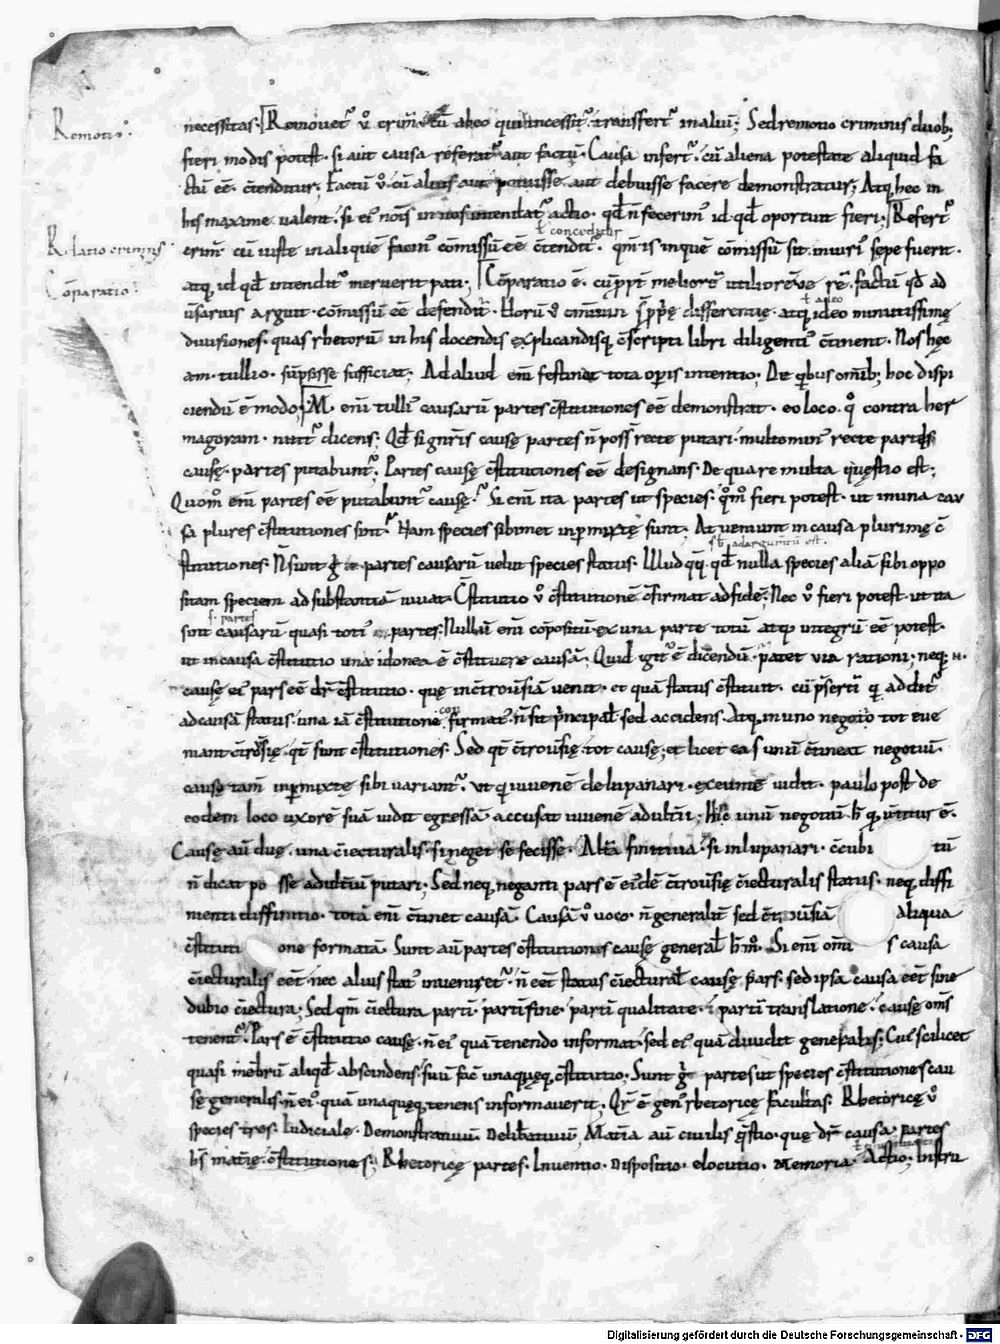 Remotio.
necessitas. Remouet᷑ u̾ crim̄ cū ab eo qui incessit᷑ transfert᷑ in aliū; Sed remotio criminis duob;
fieri modis potest. si aut causa referat᷑ aut factū. Causa infert᷑. cū aliena potestate aliquid fa
ctū eē. c̄tenditur; Factū u̾. cū alius aut potuisse aut debuisse facere demonstratur; Atq; hec in
his maxime ualent. si ei᷒ nois in nos intendat᷑ actio. qđ n̄ fecerim᷒ id qđ oportuit fieri; Refert᷑
ł conceditur
Relatio criminis
crim̄ cū iuste in aliquē facin᷒ cōmissū eē c̄tendit᷑. qm̄ is in quē cōmissū sit. iniuri᷒ sepe fuerit.
Cōparatio
atq; id qđ intendit᷑ meruerit pati; Cōparatio ē. cū ꝓpt̄ meliorē utiliorēue rē. factū qđ ad
ł adeo
uersarius arguit. cōmissū eē defendit᷑. Horū u̾ om̄ium differentię. atq; ideo minutissimę
diuisiones. quas rhetorū in his docendis explicandisq; c̄scripti libri diligenti᷒ c̄tinent. Nos hęc
a m. tullio. sūpsisse sufficiat; Ad aliud enī festinat tota opis intentio; De quibus omib; hoc dispi
ciendū ē modo; M. enī tulli᷒ causarū partes c̄stitutiones eē demonstrat. eo loco. quo contra her
magoram. nitit᷑ dicens; Qđ si gn̄ris causę partes n̄ poss̄ recte putari. multo min᷒ recte partis
causę. partes putabunt᷑; Partes causę c̄stitutiones eē designans. De qua re multa quęstio est;
Quom̊ enī partes eē putabunt᷑ causę? Si enī ita partes ut species. quom̊ fieri potest. ut in una cau
sa plures c̄stitutiones sint? Nam species sibimet inpmixtę sunt; At ueniunt in causa plurimę c̄
s. ad argumtū est.
stitutiones. N̄ sunt g̊ partes causarū uelut species status. Illud q̄q; qđ nulla species aliā sibi oppo
sitam speciem ad substantiā iuuat. C̄stitutio u̾ c̄stitutionē c̄firmat ad fidē; Nec u̾ fieri potest. ut ita
s. partes
sint causarū quasi toti᷒ partes. Nullū enī cōpositū ex una parte totū atq; integrū eē potest.
ut in causa c̄stitutio una idonea ē c̄stituere causā; Quid igit᷑ ē dicendū. patet uia rationi; neq; n.
causę ei᷒ pars eē dr̄ c̄stitutio. quę in c̄trouersiā uenit. et quā status c̄stituit. cū p̄sertī qui addit᷑
con
ad causā status. una iā c̄stitutione firmat᷑. n̄ sit principal̄ sed accidens. Atq; in uno negotio tot eue
niant c̄trouersię. qt̄ sunt c̄stitutiones. Sed qt̄ c̄trouersię. tot causę; et licet eas unū c̄tineat negotiū.
causę tam̄ inpmixtę sibi uariant᷑. Vt qui iuuenē de lupanari. exeuntē uidit. paulo post de
eodem loco uxorē suā uidit egressā. accusat iuuenē adulterii; Hic unū negotiū h̄ quod uertitur ē.
Causę aū duę. una c̄iecturalis. si neget se fecisse. Altera finitiua. si in lupanari. c̄cubi tū
n̄ dicat posse adulteriū putari; Sed neq; neganti pars ē ei᷒dē c̄trouersię c̄iecturalis status. neq; diffi
nienti diffinitio. totā enī c̄tinet causā. Causā u̾ uoco. n̄ generalit̄ sed c̄trouersiā aliqua
c̄stitutione formatā. Sunt aū partes c̄stitutiones causę general̄ h̄ m̊. Si enī omīs causa
c̄iecturalis eēt. nec alius stat᷒ inueniret᷑. n̄ eēt status c̄iectural̄ causę pars. sed ipsa causa eēt sine
dubio c̄iectura; Sed qm̄ c̄iectura partī. partī fine. partī qualitate. partī translatione. causę om̄s
tenent᷑. Pars ē c̄stitutio causę. n̄ ei᷒ quā tenendo informat. sed ei᷒ quā diuidit generalis; Cui᷒ scilicet
quasi mēbrū aliqđ abscindens. suū facit unaquęq; c̄stitutio; Sunt g̊ partes ut species c̄stitutiones cau
sę generalis. n̄ ei᷒. quā unaquęq; tenens informauerit; Qr̄ ē gen᷒ rhetoricę facultas. Rhetoricę u̾
species tres. Iudiciale. Demonstratiuū. Deliberatiuū; Materia aū ciuilis q̄stio. quę dr̄ causa. Partes
h᷒ materię. c̄stitutiones; Rhetoricę partes. Inuentio. Dispositio. elocutio. Memoria. Actio; Instru
Digitalisierung gefördert durch die Deutsche Forschungsgemeinschaft - DFG